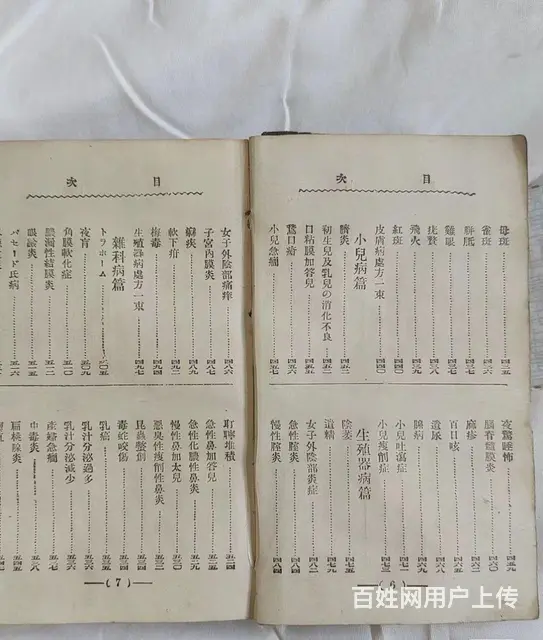 目次
母斑 四三五
雀斑
胼胝
雞眼
疣贅 四三八
飛火
紅斑 四四〇
皮膚病處方一束 四四〇
小兒病篇
臍炎 四五二
初生兒及乳兒の消化不良 四五三
口粘膜加答兒 四五五
鵞口瘡 四五六
小兒急癇 四五七
夜驚睡怖 四五九
腦脊髓膜炎
麻疹
百日咳
遺尿
小兒吐瀉症 四七一
小兒瘦削症 四七三
生殖器病篇
陰萎
遺精
女子外陰部炎症 四八二
急性腟炎 四八四
慢性腟炎 四八四
(6)
目次
女子外陰部瘙痒 四八六
子宮內膜炎 四八七
四八九
軟下疳 四九二
梅毒 四九四
生殖器病處方一束 四九七
雜科病篇
トラホーム 五〇五
夜盲 五〇九
角膜軟化症 五一〇
膿漏性結膜炎 五一二
眼瞼炎 五一五
バセード氏病 五一六
耵聹堆積 五二四
急性鼻加答兒
急性化膿性鼻炎 五二九
慢性鼻加太兒 五三〇
惡臭性瘦削性鼻炎 五三二
昆蟲螫創
毒蛇咬傷 五三四
乳癌 五三五
乳汁分泌過多 五三六
乳汁分泌減少 五三六
產褥急癇 五三七
中毒炎 五三八
扁桃腺炎 五四五
(7)
百姓网用户上传